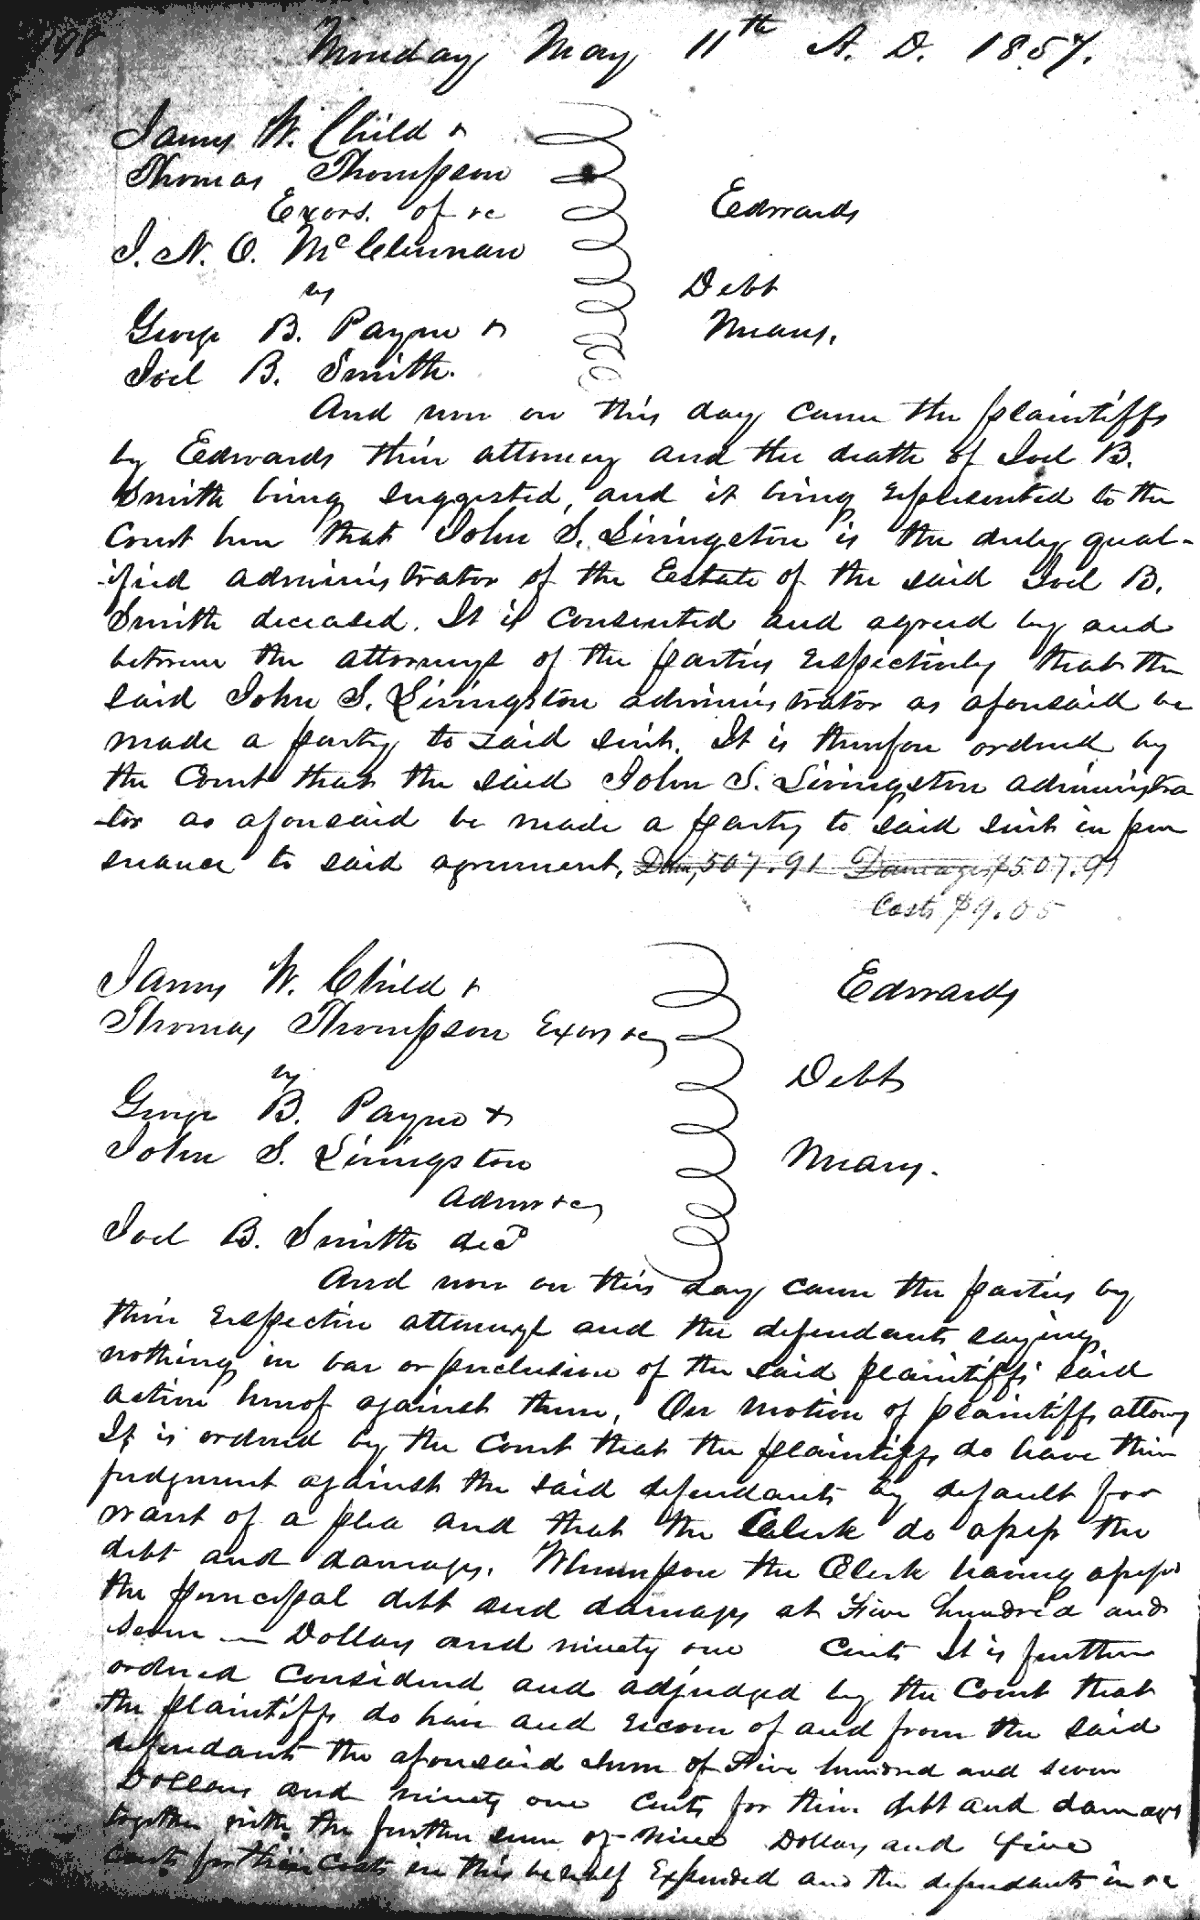 Monday May 11th A. D. 1857.
James W. Child &
Thomas Thompson
Exors. of &c
J. N. O. McClennan
vs
George B. Payne &
Joel B. Smith.
Edwards
Debt
Means.
And now on this day came the plaintiffs
by Edwards their attorney and the death of Joel B.
Smith being suggested, and it being represented to the
Court here that John S. Livingston is the duly qual-
-ified administrator of the Estate of the said Joel B.
Smith deceased. It is consented and agreed by and
between the attorneys of the parties respectively that the
said John S. Livingston administrator as aforesaid be
made a party to said suit. It is therefore ordered by
the Court that the said John S. Livingston administra
-tor as aforesaid be made a party to said suit in pur
suance to said agreement. 507.91 Damages $507.91
Costs $9.05
James W. Child &
Thomas Thompson Exors &c
vs
George B. Payne &
John S. Livingston
Admr &c
Joel B. Smith decd
Edwards
Debt
Means.
And now on this day came the parties by
their respective attorneys and the defendants saying
nothing in bar or preclusion of the said plaintiffs said
action hereof against them, On motion of plaintiffs attorney
It is ordered by the Court that the plaintiffs do have their
judgment against the said defendants by default for
want of a plea and that the Clerk do assess the
debt and damages. Whereupon the Clerk having assessed
the principal debt and damages at Five hundred and
seven — Dollars and ninety one Cents It is further
ordered considered and adjudged by the Court that
the plaintiffs do have and recover of and from the said
defendants the aforesaid sum of Five hundred and seven
Dollars and ninety one Cents for their debt and damages
together with the further sum of Nine Dollars and five
Cents for their Costs in this behalf Expended and the defendants in &c